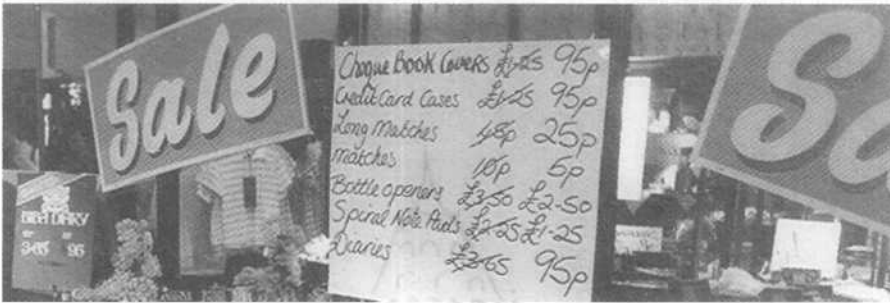 Sale
Cheque Book Covers £1-25 95p
Credit Card Cases £1-25 95p
Long Matches 48p 25p
matches 10p 5p
Bottle openers £3-50 £2-50
Spiral Note Pads £2-25 £1-25
Diaries £3-65 95p
Sa
DIARY
3-65 95